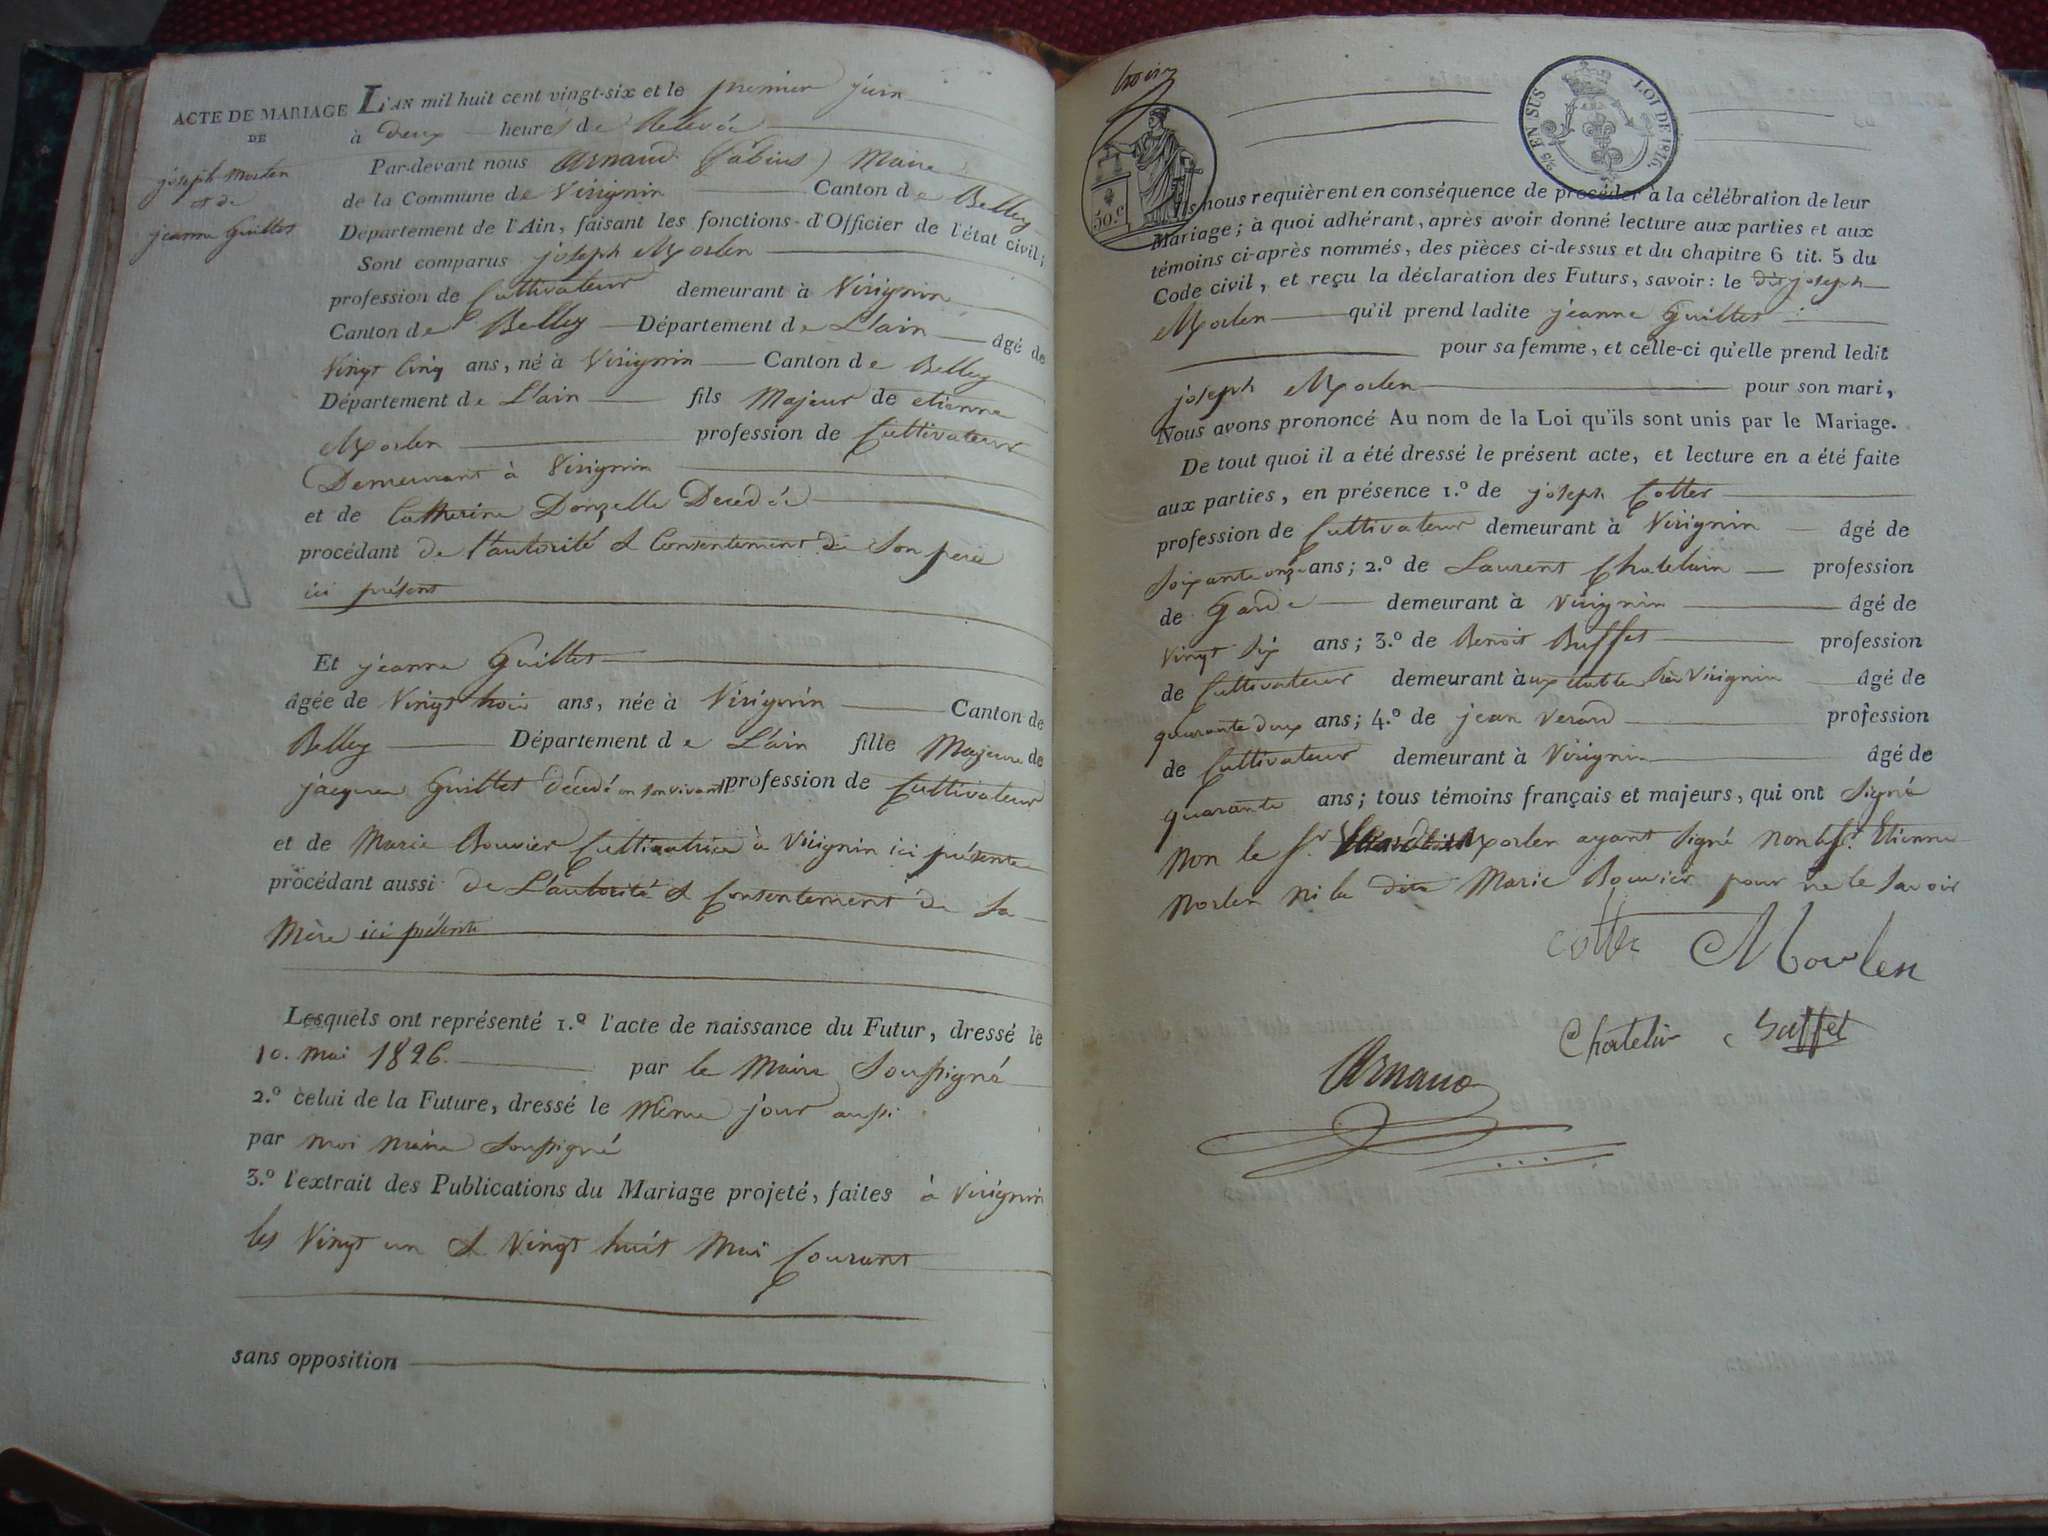 ACTE DE MARIAGE
DE
joseph Morlen
et de
jeanne Guillet
L'AN mil huit cent vingt-six et le premier juin
à deux heures de Relevée
Par-devant nous Arnaud (fabius) Maire
de la Commune de Virignin Canton de Belley
Département de l'Ain, faisant les fonctions d'Officier de l'état civil;
Sont comparus joseph Morlen
profession de Cultivateur demeurant à Virignin
Canton de Belley Département de L'ain âgé de
Vingt Cinq ans, né à Virignin Canton de Belley
Département de L'ain fils Majeur de etienne
Morlen profession de Cultivateur
Demeurant à Virignin
et de Catherine Donzelle Decédée
procédant de l'autorité & Consentement de Son pere
ici présent
Et jeanne Guillet
âgée de Vingt trois ans, née à Virignin Canton de
Belley Département de L'ain fille Majeure de
jacques Guillet décédé en son vivant profession de Cultivateur
et de Marie Bouvier Cultivatrice à Virignin ici présente
procédant aussi de L'autorité & Consentement de Sa
Mère ici présente
Lesquels ont représenté 1.º l'acte de naissance du Futur, dressé le
10. mai 1826. par le Maire Soussigné
2.º celui de la Future, dressé le Même jour aussi
par moi maire Soussigné
3.º l'extrait des Publications du Mariage projeté, faites à Virignin
les Vingt un & Vingt huit Mai Courant
sans opposition
50.c
2/5 EN SUS LOI DE 1816.
Ils nous requièrent en conséquence de procéder à la célébration de leur
Mariage; à quoi adhérant, après avoir donné lecture aux parties et aux
témoins ci-après nommés, des pièces ci-dessus et du chapitre 6 tit. 5 du
Code civil, et reçu la déclaration des Futurs, savoir: le dit joseph
Morlen qu'il prend ladite jeanne Guillet
pour sa femme, et celle-ci qu'elle prend ledit
joseph Morlen pour son mari,
Nous avons prononcé Au nom de la Loi qu'ils sont unis par le Mariage.
De tout quoi il a été dressé le présent acte, et lecture en a été faite
aux parties, en présence 1.º de joseph Cotter
profession de Cultivateur demeurant à Virignin âgé de
Soixante onze ans; 2.º de Laurent Chatelain profession
de Garde demeurant à Virignin âgé de
Vingt Six ans; 3.º de Benoit Buffet profession
de Cultivateur demeurant à Virignin âgé de
quarante deux ans; 4.º de jean Verard profession
de Cultivateur demeurant à Virignin âgé de
quarante ans; tous témoins français et majeurs, qui ont Signé
Non le Sr. Morlen ayant Signé non le Sr. Etienne
Morlen ni la dite Marie Bouvier pour ne le Savoir
Cotter Morlen
Chatelin Buffet
Arnaud